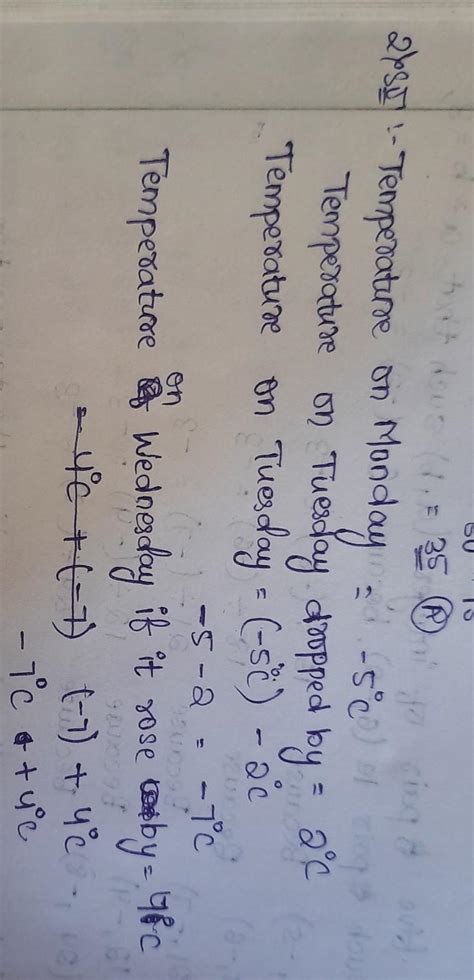 50 10
= 35 (R)
Temperature on Monday = -5°C
Temperature on Tuesday dropped by = 2°C
Temperature on Tuesday = (-5°C) - 2°C
-5 - 2 = -7°C
Temperature on Wednesday if it rose by = 4°C
- 4°C + (-7) (-7) + 4°C
- 7°C + 4°C